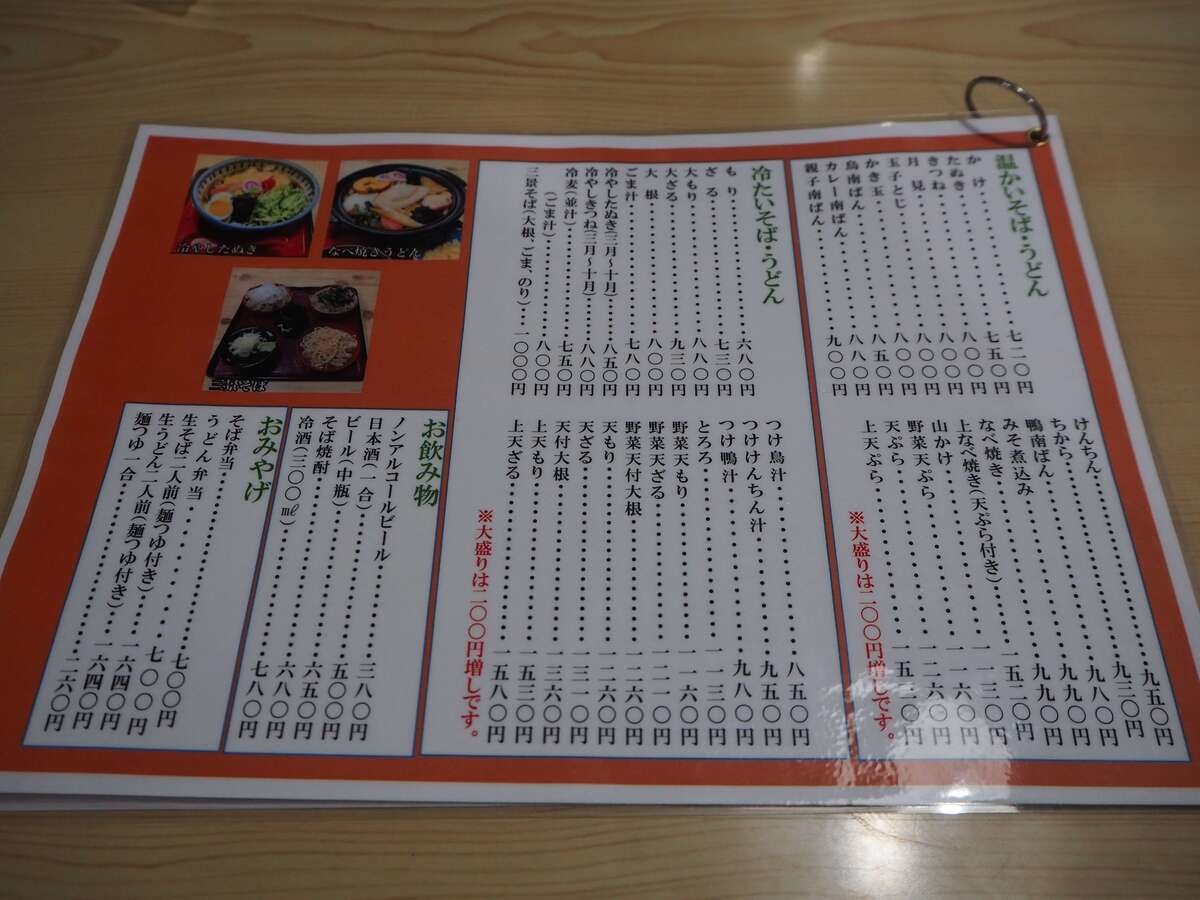 温かいそば・うどん
かけ・・・・・・七二〇円
たぬき・・・・・・七五〇円
きつね・・・・・・八〇〇円
月見・・・・・・八〇〇円
玉子とじ・・・・・・八〇〇円
かき玉・・・・・・八〇〇円
鳥南ばん・・・・・・八五〇円
カレー南ばん・・・・・・八八〇円
親子南ばん・・・・・・九〇〇円
けんちん・・・・・・九五〇円
ちから・・・・・・九三〇円
鴨南ばん・・・・・・九八〇円
みそ煮込み・・・・・・九九〇円
なべ焼き・・・・・・九九〇円
上なべ焼き(天ぷら付き)・・・・・・一五二〇円
山かけ・・・・・・一一三〇円
野菜天ぷら・・・・・・一一六〇円
天ぷら・・・・・・一二六〇円
上天ぷら・・・・・・
※大盛りは二〇〇円増しです。
冷たいそば・うどん
もり・・・・・・六八〇円
ざる・・・・・・七三〇円
大もり・・・・・・八八〇円
大ざる・・・・・・九三〇円
大根・・・・・・八〇〇円
ごま汁・・・・・・七八〇円
冷やしたぬき(三月～十月)・・・・・・八五〇円
冷やしきつね(三月～十月)・・・・・・八八〇円
冷麦(並汁)・・・・・・七五〇円
(ごま汁)・・・・・・八〇〇円
三景そば(大根、ごま、のり)・・・一〇〇〇円
つけ鳥汁・・・・・・八五〇円
つけけんちん汁・・・・・・九五〇円
つけ鴨汁・・・・・・九八〇円
とろろ・・・・・・一一三〇円
野菜天もり・・・・・・一一六〇円
野菜天ざる・・・・・・一二一〇円
野菜天付大根・・・・・・一二六〇円
天もり・・・・・・一二六〇円
天ざる・・・・・・一三一〇円
天付大根・・・・・・一三六〇円
上天もり・・・・・・一五三〇円
上天ざる・・・・・・一五八〇円
※大盛りは二〇〇円増しです。
冷やしたぬき
なべ焼きうどん
三景そば
お飲み物
ノンアルコールビール・・・・・・三八〇円
日本酒(一合)・・・・・・五〇〇円
ビール(中瓶)・・・・・・六五〇円
そば焼酎・・・・・・六八〇円
冷酒(三〇〇㎖)・・・・・・七八〇円
おみやげ
そば弁当・・・・・・七〇〇円
うどん弁当・・・・・・七〇〇円
生そば二人前(麺つゆ付き)・・・一六四〇円
生うどん二人前(麺つゆ付き)・・・一六四〇円
麺つゆ一合・・・・・・二六〇円